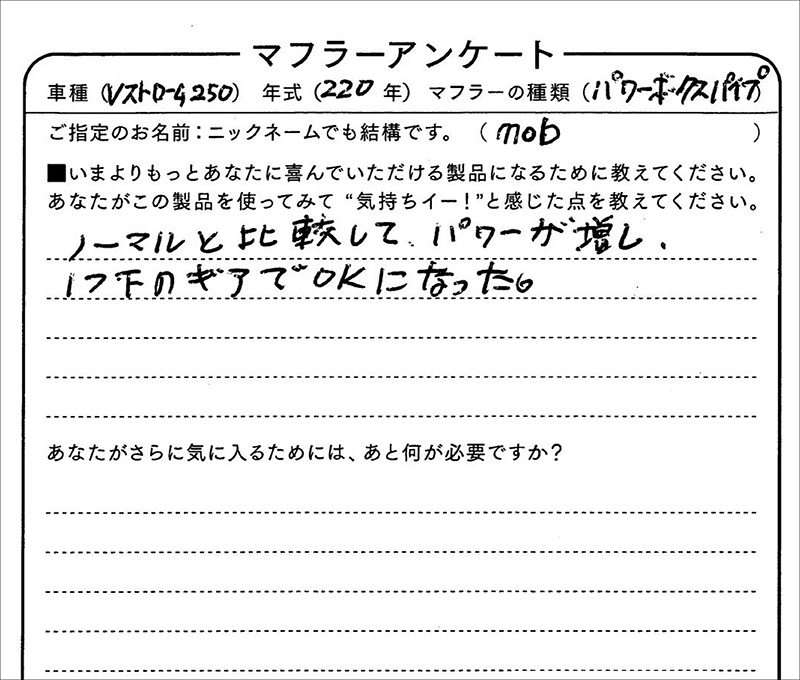 マフラーアンケート
車種（Vストローム250） 年式（220年） マフラーの種類（パワーボックスパイプ
ご指定のお名前：ニックネームでも結構です。（nob）
■いまよりもっとあなたに喜んでいただける製品になるために教えてください。
あなたがこの製品を使ってみて“気持ちイー！”と感じた点を教えてください。
ノーマルと比較して、パワーが増し、
1つ下のギアでOKになった。
あなたがさらに気に入るためには、あと何が必要ですか？